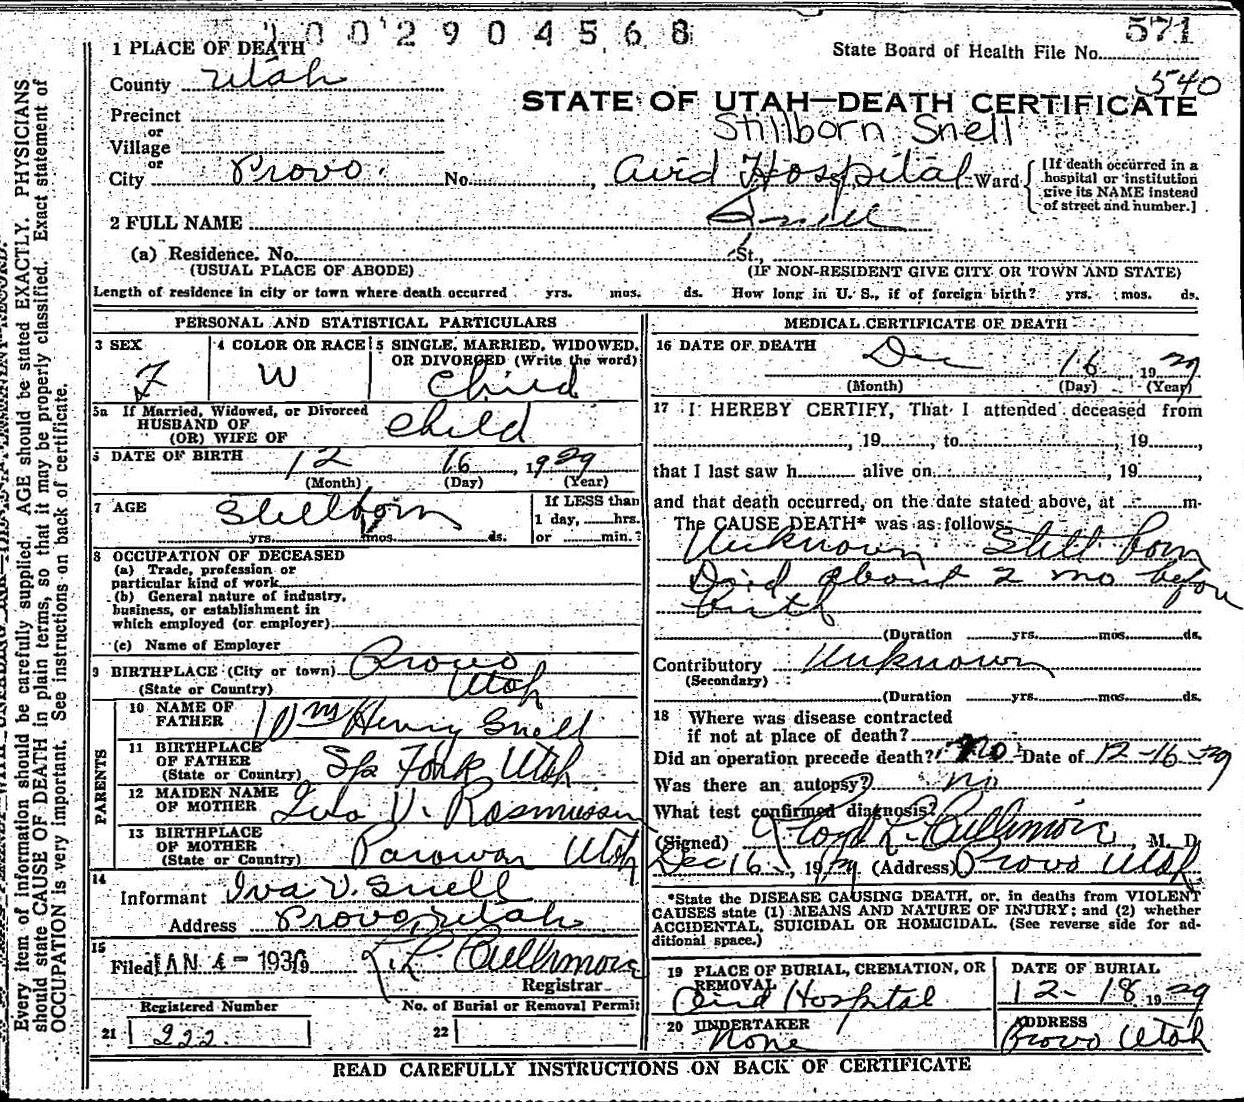 1002904568
571
1 PLACE OF DEATH
State Board of Health File No.
540
County Utah
STATE OF UTAH—DEATH CERTIFICATE
Precinct
Stillborn Snell
or
Village
or
City Provo. No. , Aird Hospital Ward
[If death occurred in a hospital or institution give its NAME instead of street and number.]
2 FULL NAME Snell
(a) Residence. No. St.,
(USUAL PLACE OF ABODE) (IF NON-RESIDENT GIVE CITY OR TOWN AND STATE)
Length of residence in city or town where death occurred yrs. mos. ds. How long in U. S., if of foreign birth? yrs. mos. ds.
PERSONAL AND STATISTICAL PARTICULARS
3 SEX F
4 COLOR OR RACE W
5 SINGLE, MARRIED, WIDOWED,
OR DIVORCED (Write the word)
Child
5a If Married, Widowed, or Divorced
HUSBAND OF
(OR) WIFE OF Child
6 DATE OF BIRTH 12 16, 1929
(Month) (Day) (Year)
7 AGE Stillborn
yrs. mos. ds.
If LESS than
1 day, hrs.
or min.?
8 OCCUPATION OF DECEASED
(a) Trade, profession or
particular kind of work
(b) General nature of industry,
business, or establishment in
which employed (or employer)
(c) Name of Employer
9 BIRTHPLACE (City or town) Provo
(State or Country) Utah
PARENTS
10 NAME OF
FATHER Wm Henry Snell
11 BIRTHPLACE
OF FATHER
(State or Country) Sp Fork Utah
12 MAIDEN NAME
OF MOTHER Iva V. Rasmussen
13 BIRTHPLACE
OF MOTHER
(State or Country) Parowan Utah
14
Informant Iva V. Snell
Address Provo Utah
15
Filed JAN 4 - 1930 L. L. Cullimore
Registrar
Registered Number No. of Burial or Removal Permit
21 222 22
MEDICAL CERTIFICATE OF DEATH
16 DATE OF DEATH Dec 16 1929
(Month) (Day) (Year)
17 I HEREBY CERTIFY, That I attended deceased from
, 19 , to , 19 ,
that I last saw h alive on , 19
and that death occurred, on the date stated above, at m.
The CAUSE DEATH* was as follows:
Unknown Still born
Died about 2 mo before
birth
(Duration yrs. mos. ds.
Contributory Unknown
(Secondary)
(Duration yrs. mos. ds.
18 Where was disease contracted
if not at place of death?
Did an operation precede death? no Date of 12-16-29
Was there an autopsy? no
What test confirmed diagnosis?
(Signed) Floyd L. Cullimore, M. D.
Dec 16, 1929 (Address) Provo Utah
*State the DISEASE CAUSING DEATH, or, in deaths from VIOLENT
CAUSES state (1) MEANS AND NATURE OF INJURY; and (2) whether
ACCIDENTAL, SUICIDAL OR HOMICIDAL. (See reverse side for ad-
ditional space.)
19 PLACE OF BURIAL, CREMATION, OR
REMOVAL
Aird Hospital
DATE OF BURIAL
12-18 1929
20 UNDERTAKER
None
ADDRESS
Provo Utah
READ CAREFULLY INSTRUCTIONS ON BACK OF CERTIFICATE
Every item of information should be carefully supplied. AGE should be stated EXACTLY. PHYSICIANS
should state CAUSE OF DEATH in plain terms, so that it may be properly classified. Exact statement of
OCCUPATION is very important. See instructions on back of certificate.